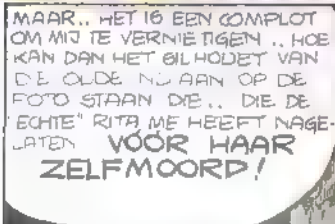 MAAR.. HET IS EEN COMPLOT
OM MIJ TE VERNIETIGEN .. HOE
KAN DAN HET SILHOUET VAN
DE OLDE NU AAN OP DE
FOTO STAAN DIE.. DIE DE
"ECHTE" RITA ME HEEFT NAGE-
LATEN VÓÓR HAAR
ZELFMOORD!